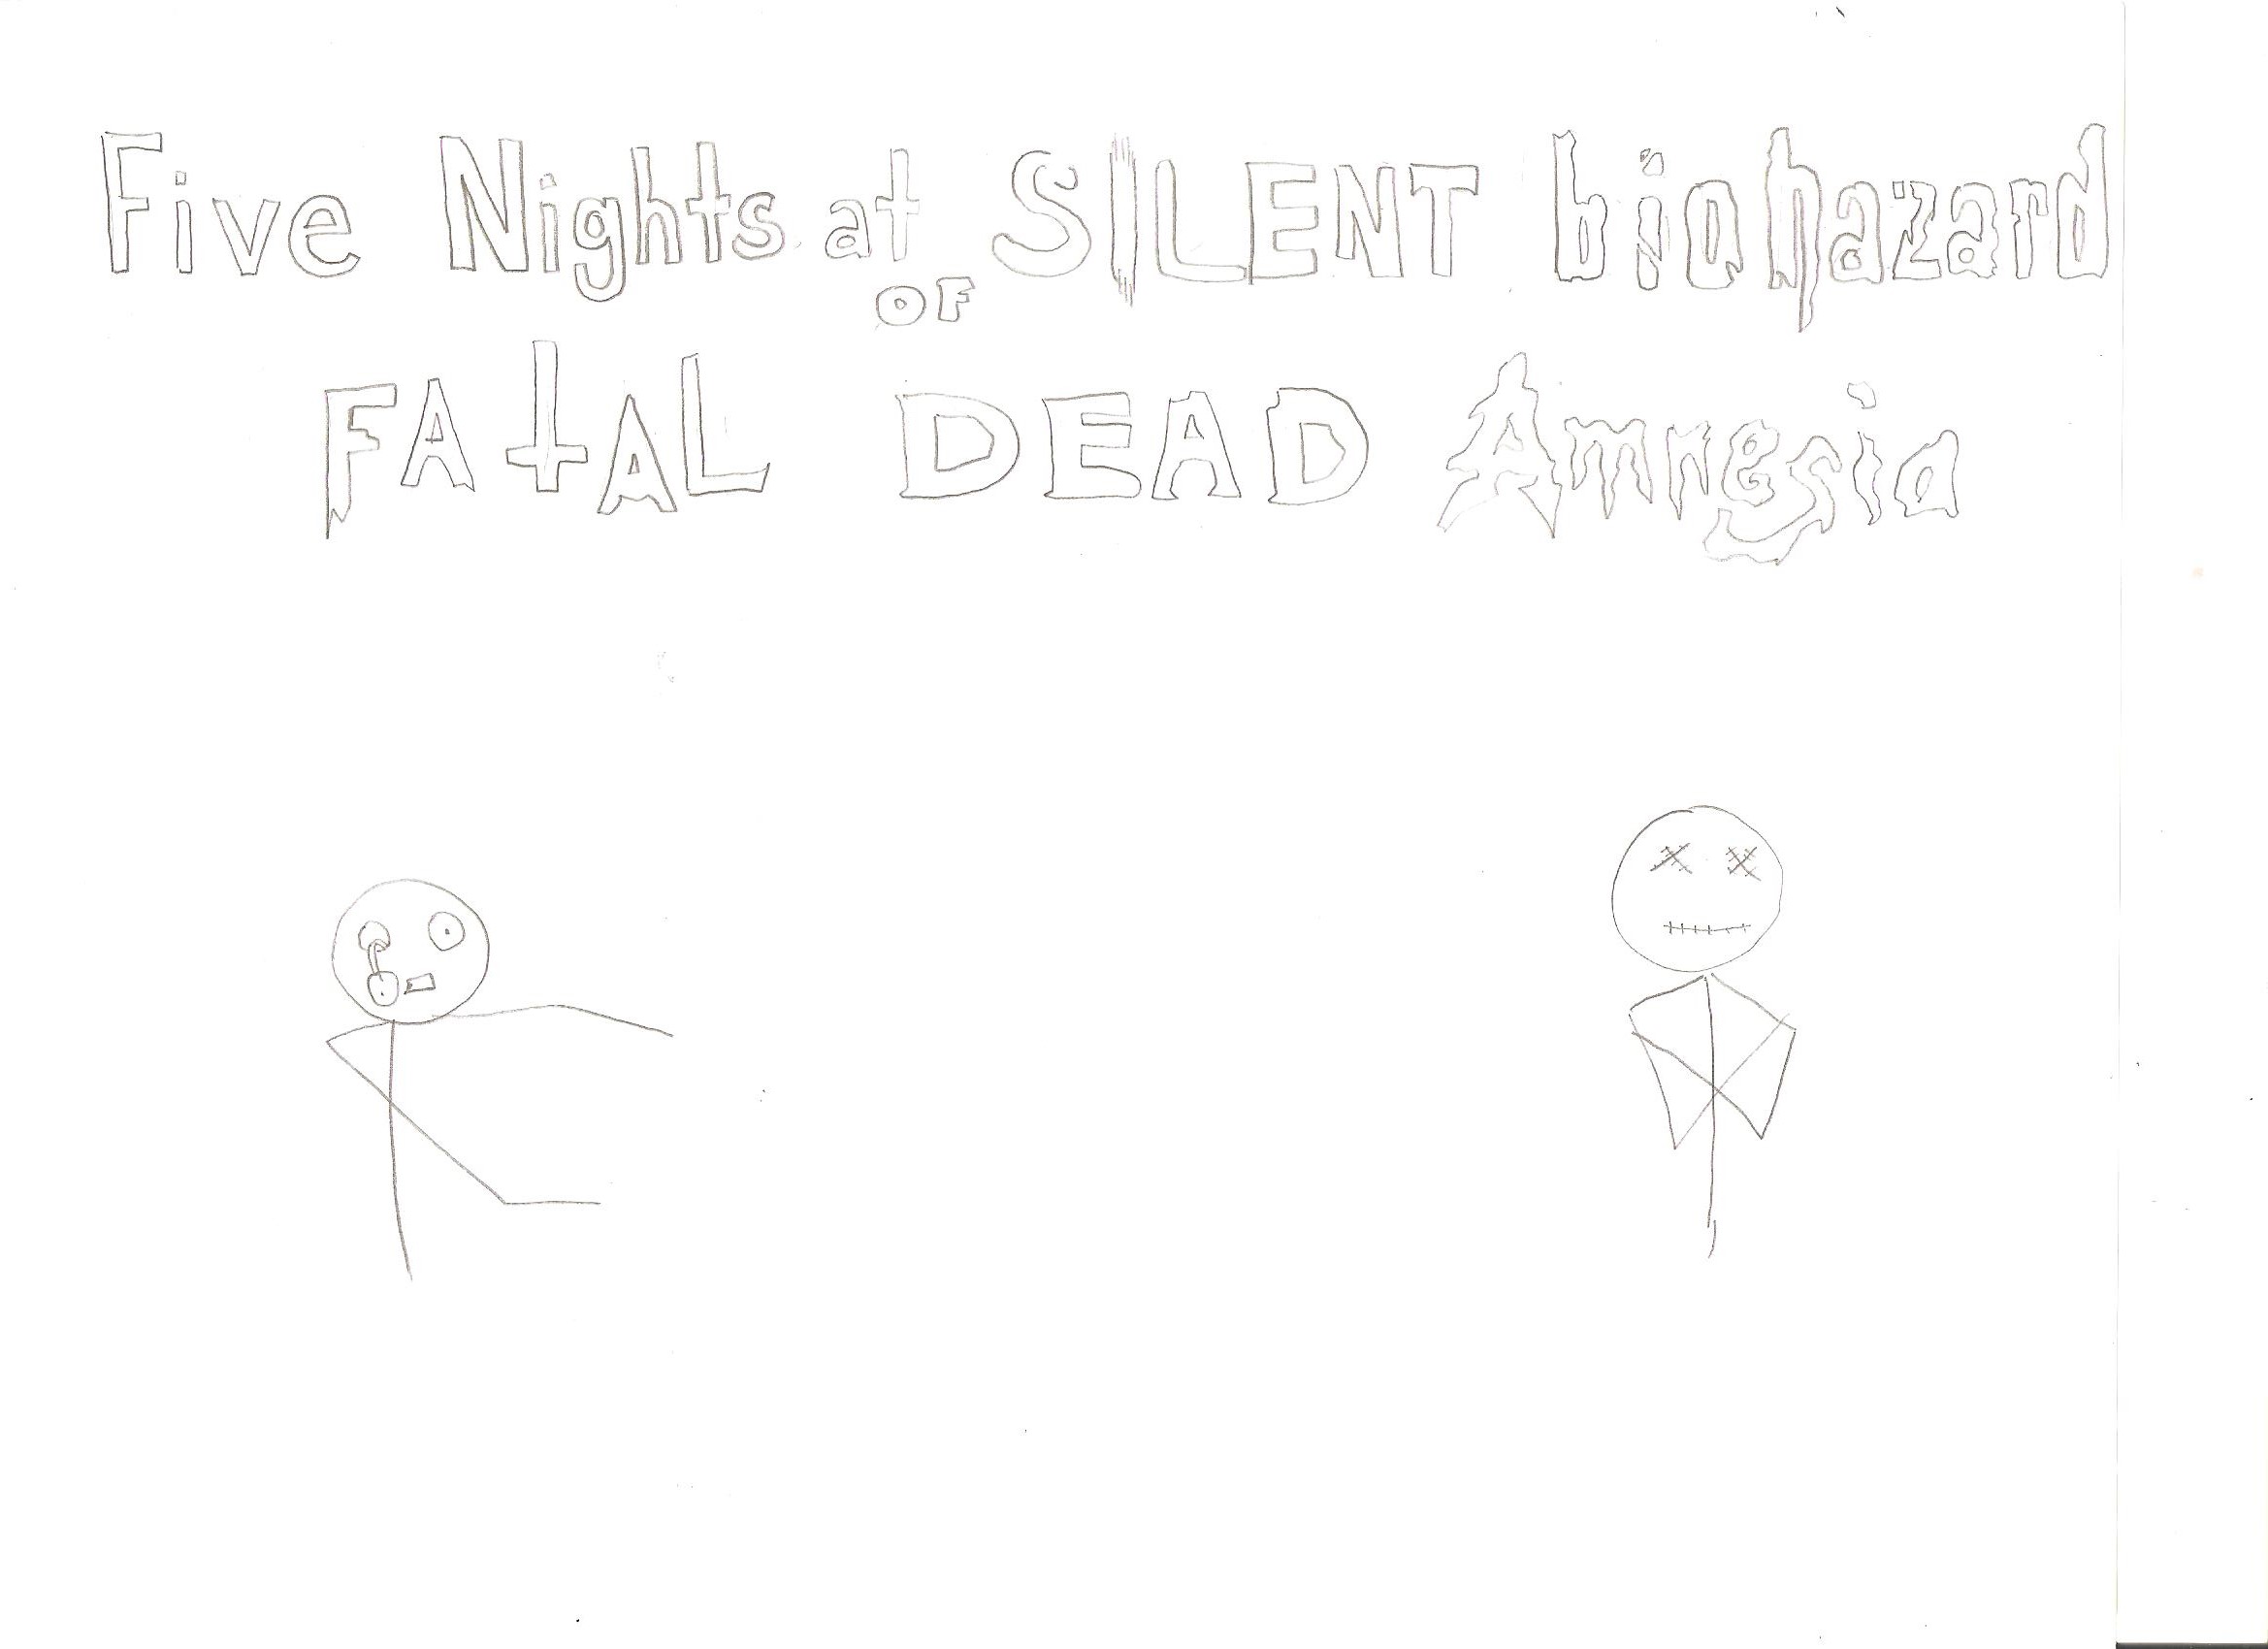 Five Nights at SILENT biohazard
OF
FAtAL DEAD Amnesia